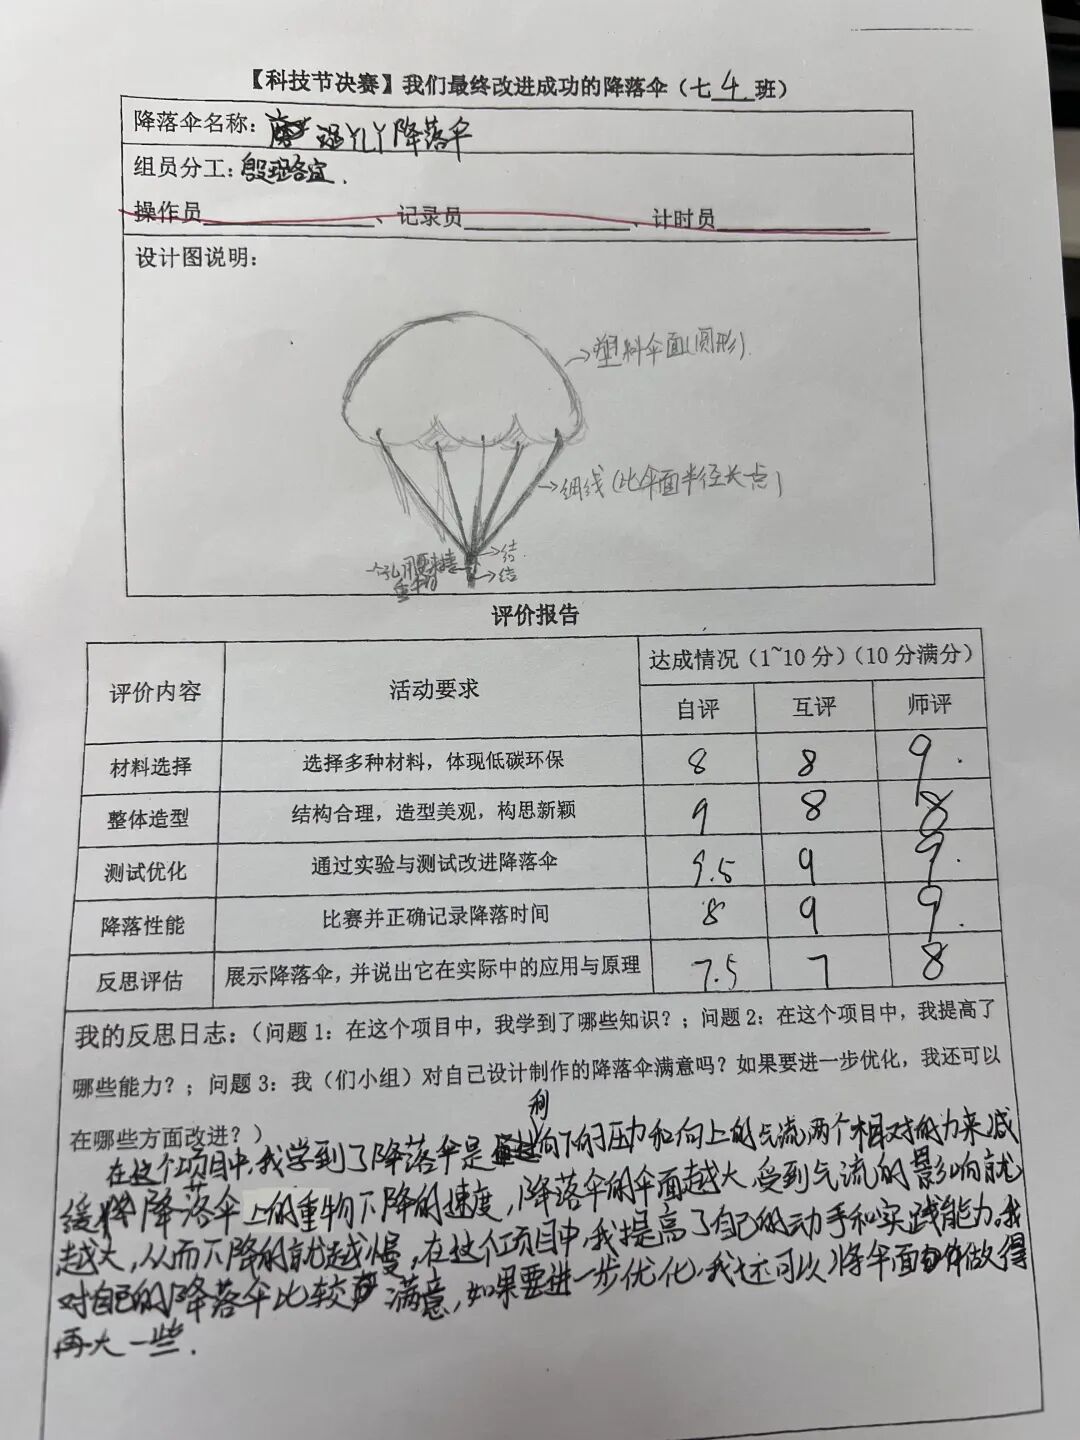 【科技节决赛】我们最终改进成功的降落伞（七4班）
降落伞名称：降落伞
组员分工：
操作员、记录员、计时员
设计图说明：
塑料伞面（圆形）
细线（比伞面半径长一点）
结
结
评价报告
评价内容 活动要求 达成情况（1~10分）（10分满分）
自评 互评 师评
材料选择 选择多种材料，体现低碳环保 8 8 9.
整体造型 结构合理，造型美观，构思新颖 9 8 8
测试优化 通过实验与测试改进降落伞 9.5 9 9.
降落性能 比赛并正确记录降落时间 8 9 9.
反思评估 展示降落伞，并说出它在实际中的应用与原理 7.5 7 8
我的反思日志：（问题1：在这个项目中，我学到了哪些知识？；问题2：在这个项目中，我提高了
哪些能力？；问题3：我（们小组）对自己设计制作的降落伞满意吗？如果要进一步优化，我还可以
在哪些方面改进？）
在这个项目中，我学到了降落伞是利向下的压力和向上的气流两个相对的力来减
缓降落伞上的重物下降的速度，降落伞的伞面越大，受到气流的影响就
越大，从而下降的就越慢，在这个项目中，我提高了自己的动手和实践能力。我
对自己的降落伞比较满意，如果要进一步优化，我还可以将伞面做得
再大一些.